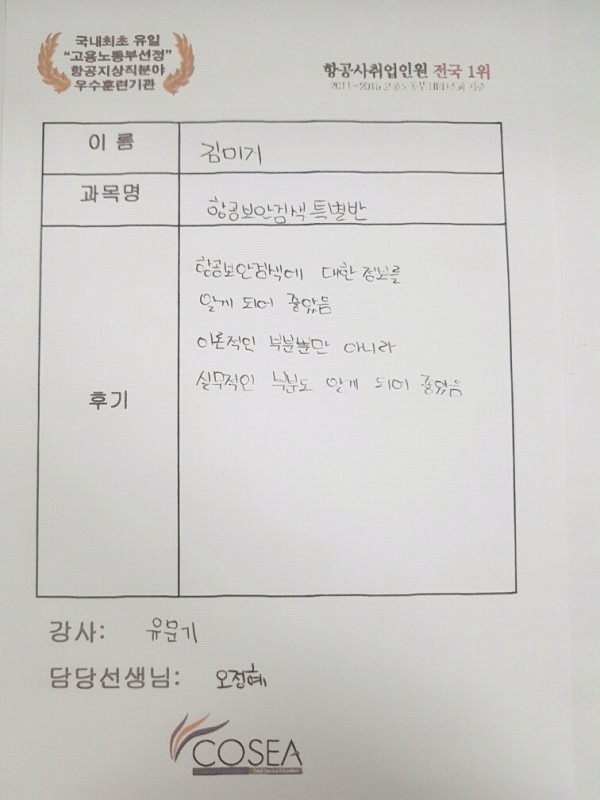 국내최초 유일
"고용노동부선정"
항공지상직분야
우수훈련기관
항공사취업인원 전국 1위
이 름
김미기
과목명
항공보안검색 특별반
후기
항공보안검색에 대한 정보를
알게 되어 좋았음
이론적인 부분뿐만 아니라
실무적인 부분도 알게 되어 좋았음
강사: 유문기
담당선생님: 오정혜
COSEA